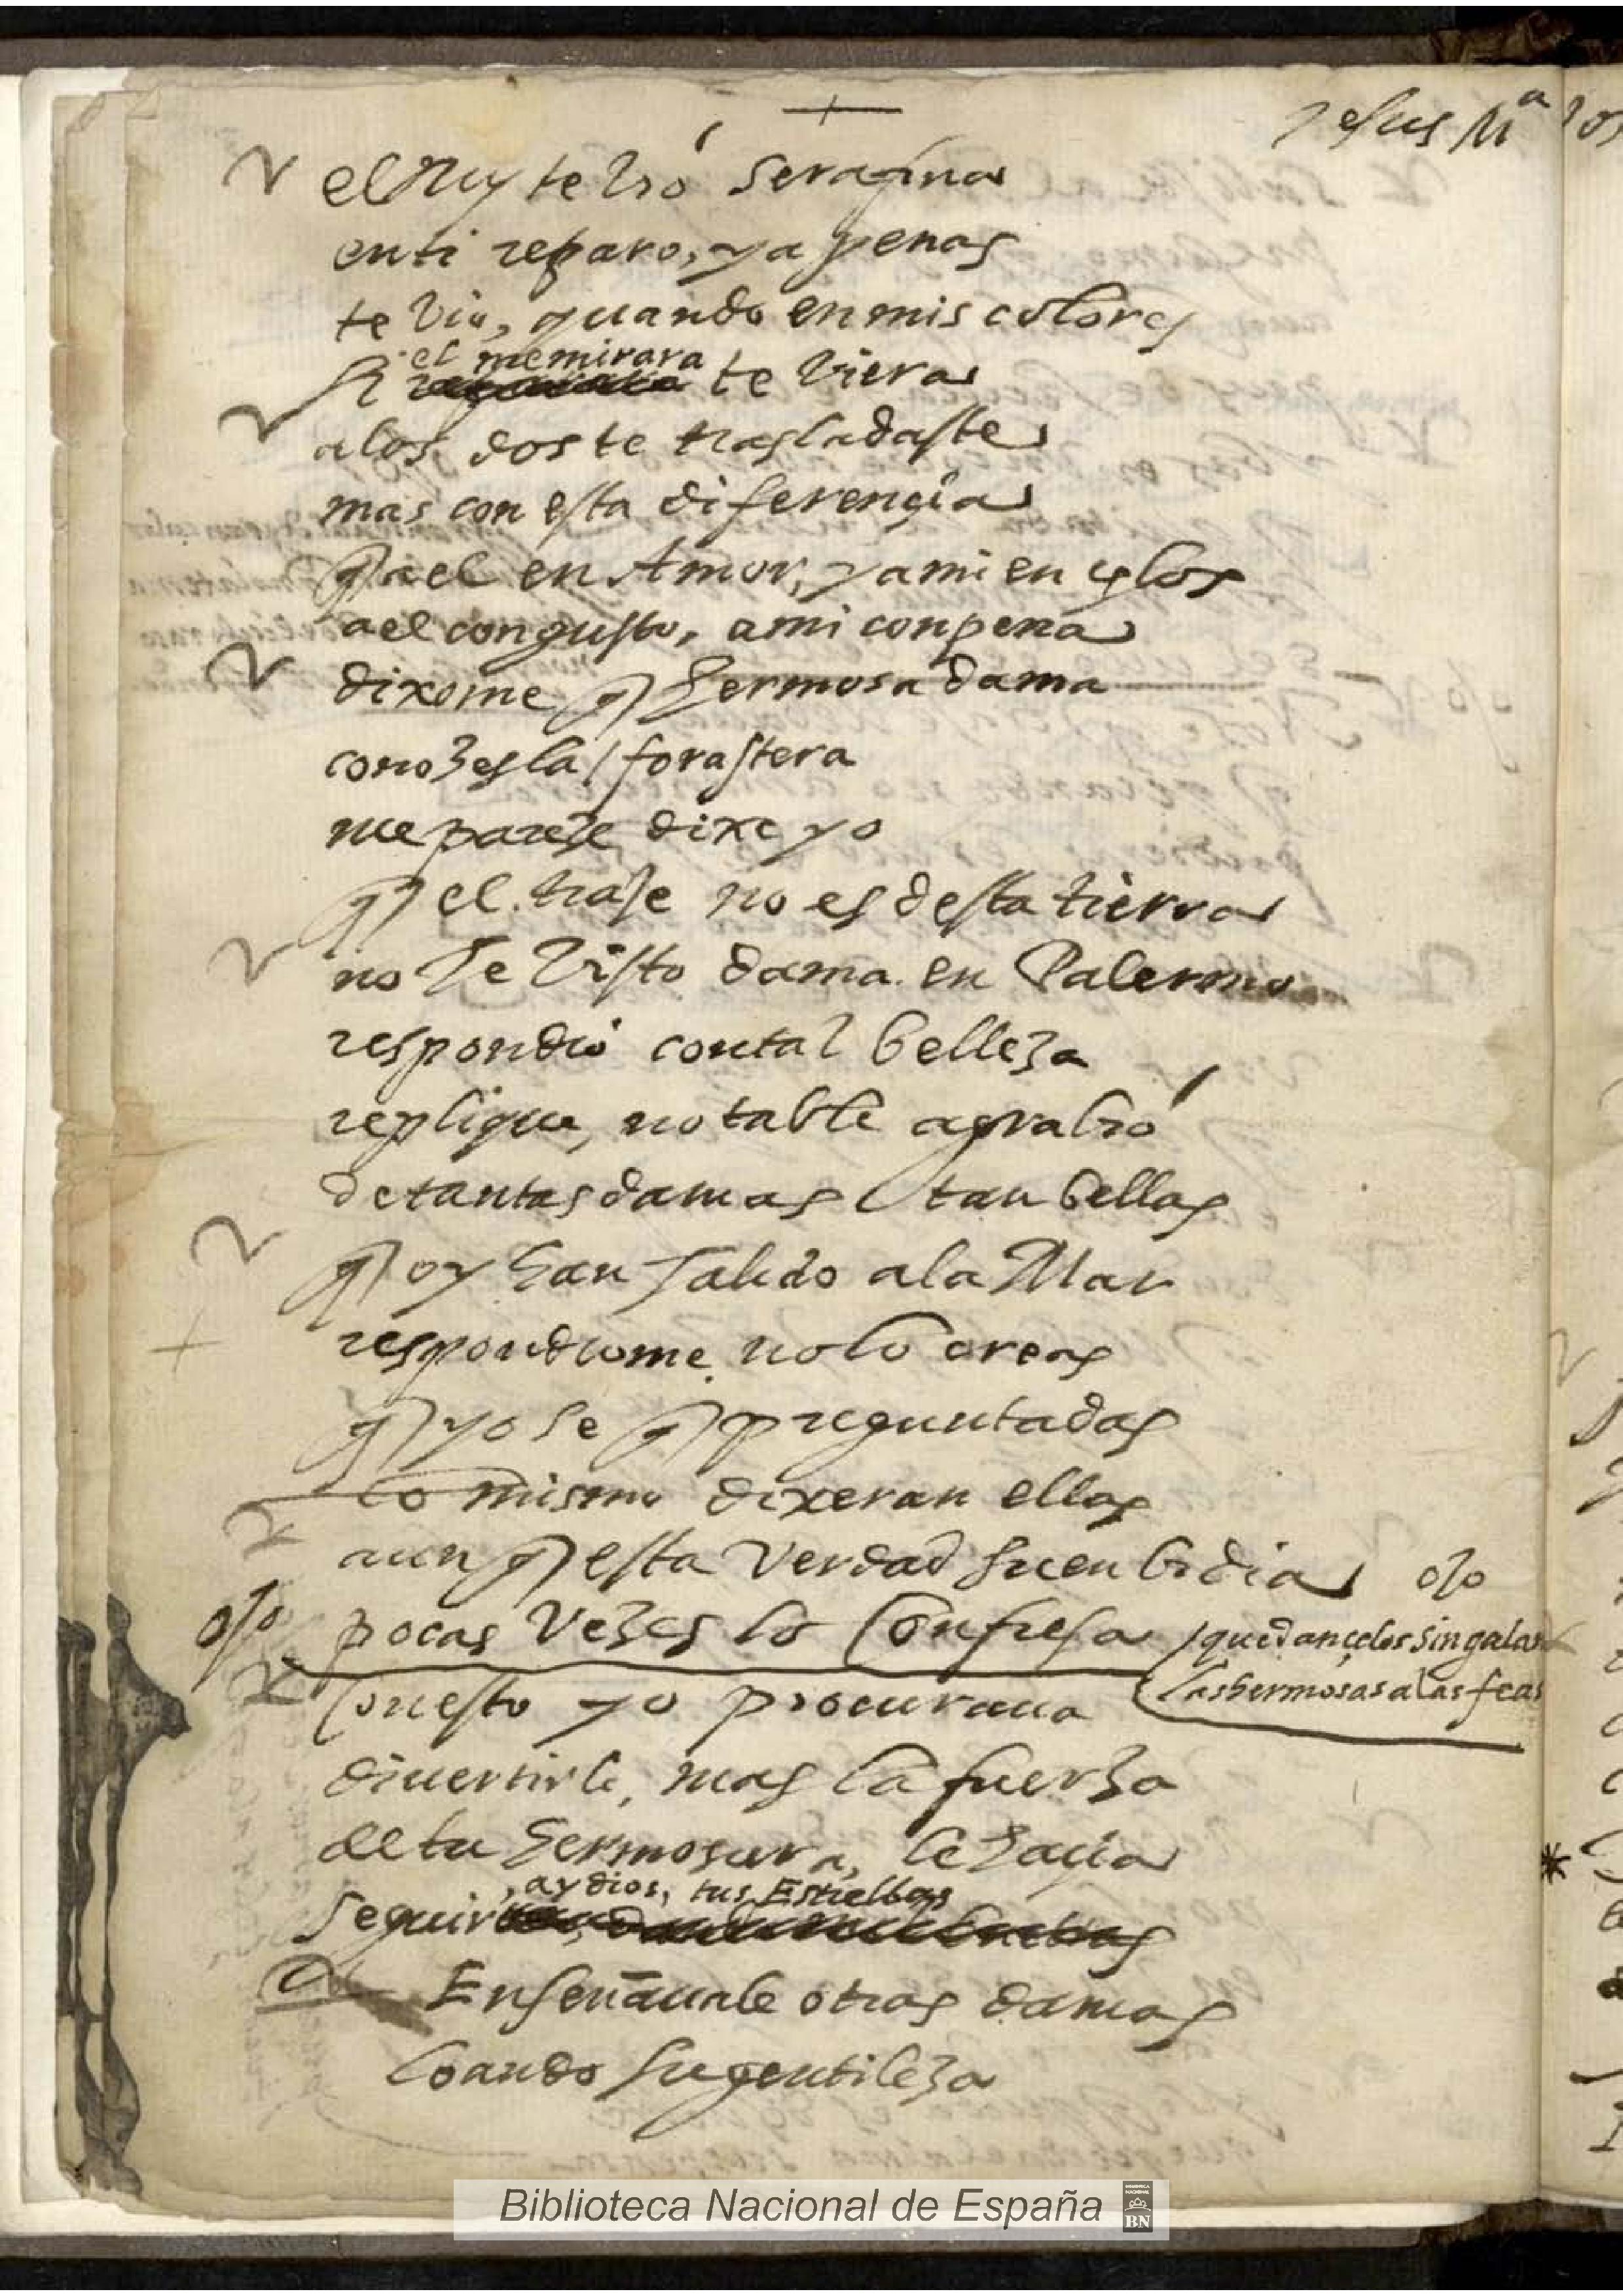 Jesus Mª
el Rey te bio Serafina
en ti reparo, y apenas
te vio, quando en mis colores
el me mirara
si te viera
a los dos te trasladaste
mas con esta diferençia
q a el en Amor, y a mi en çelos
a el con gusto, a mi con pena
dixome q hermosa dama
conozesla? forastera
me pareze dixe yo
q el traje no es desta tierra
no he visto dama en Palermo
respondio con tal belleza
replique, notable agrabio
de tantas damas tan bellas
q oy han salido a la Mar
respondiome no lo creas
q yo se q preguntadas
lo mismo dixeran ellas
aun q esta verdad su enbidia o/o
o/o pocas vezes lo Confiesa
quedan çelos sin galas
las hermosas a las feas
Con esto yo procuraua
diuertirle, mas la fuerza
de tu hermosura, le haçia
, ay dios, tus Estrellas
Seguir
Enseñauale otras damas
loando su gentileza
Biblioteca Nacional de España
BN